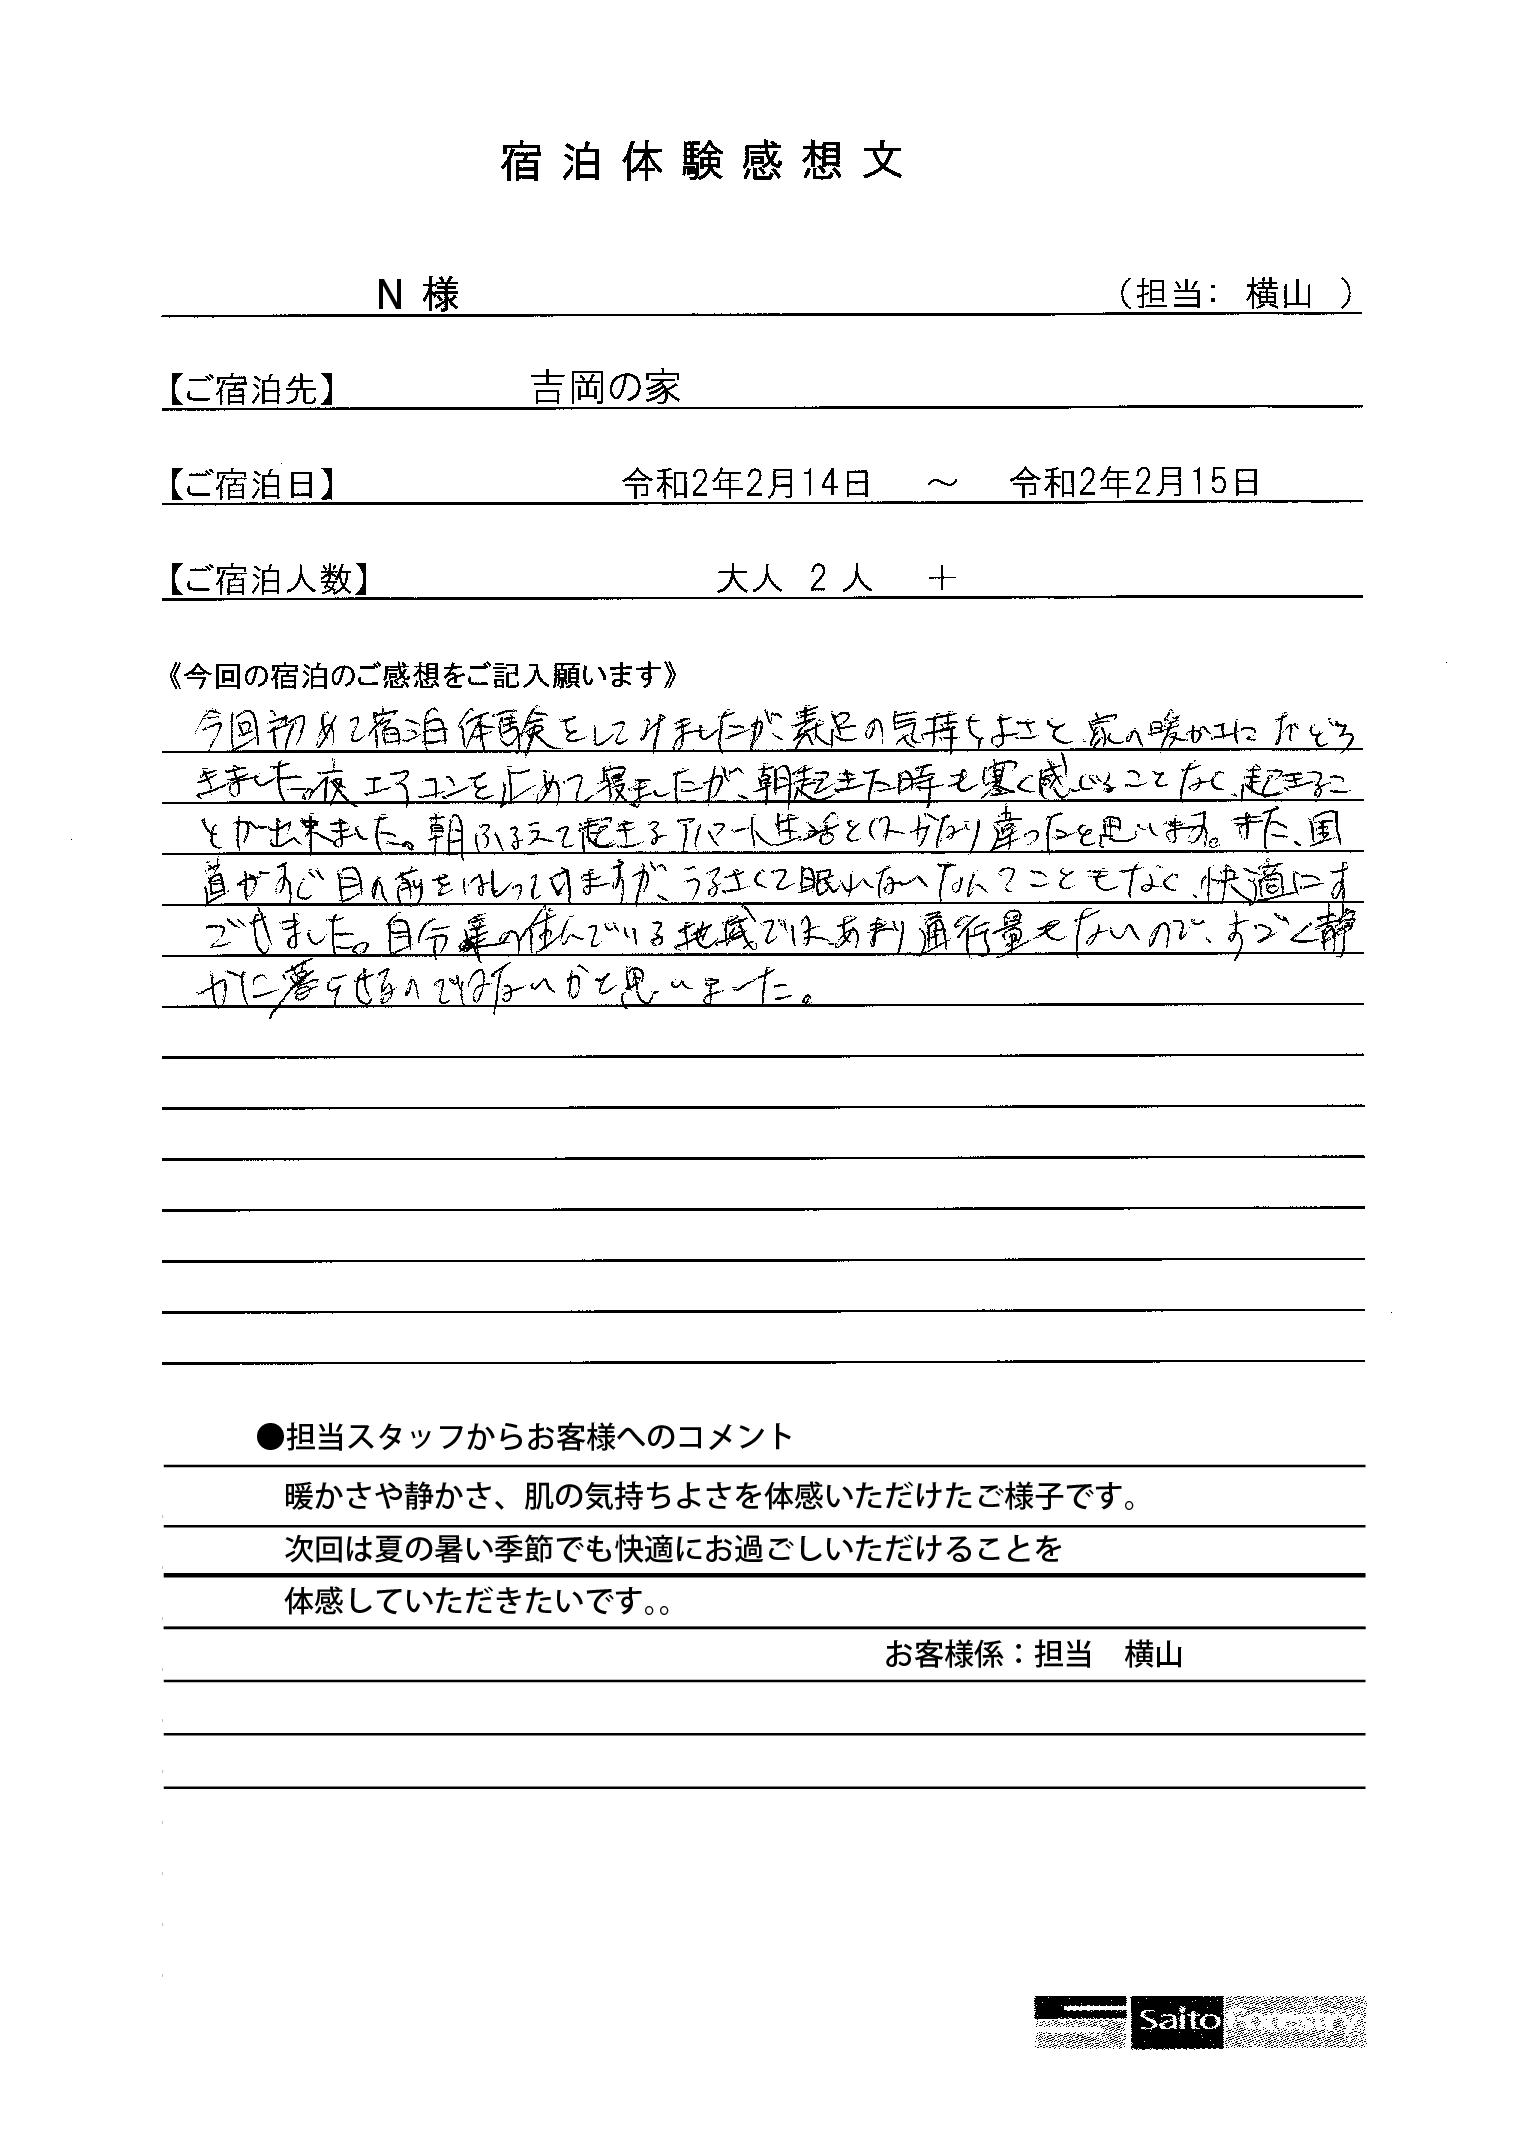 宿泊体験感想文
N 様 （担当： 横山 ）
【ご宿泊先】 吉岡の家
【ご宿泊日】 令和2年2月14日 ～ 令和2年2月15日
【ご宿泊人数】 大人 2 人 ＋
《今回の宿泊のご感想をご記入願います》
今回初めて宿泊体験をしてみましたが、素足の気持ちよさと、家の暖かさにおどろ
きました。夜エアコンを止めて寝ましたが、朝起きた時も寒く感じることなく、起きるこ
とが出来ました。朝ふるえて起きるアパート生活とはかなり違ったと思います。また、国
道がすぐ目の前をはしってますが、うるさくて眠れないなんてこともなく、快適にす
ごせました。自分の住んでいる地域ではあまり通行量もないので、すごく静
かに暮らせるのではないかと思いました。
●担当スタッフからお客様へのコメント
暖かさや静かさ、肌の気持ちよさを体感いただけたご様子です。
次回は夏の暑い季節でも快適にお過ごしいただけることを
体感していただきたいです。。
お客様係：担当 横山
Saito Forestry